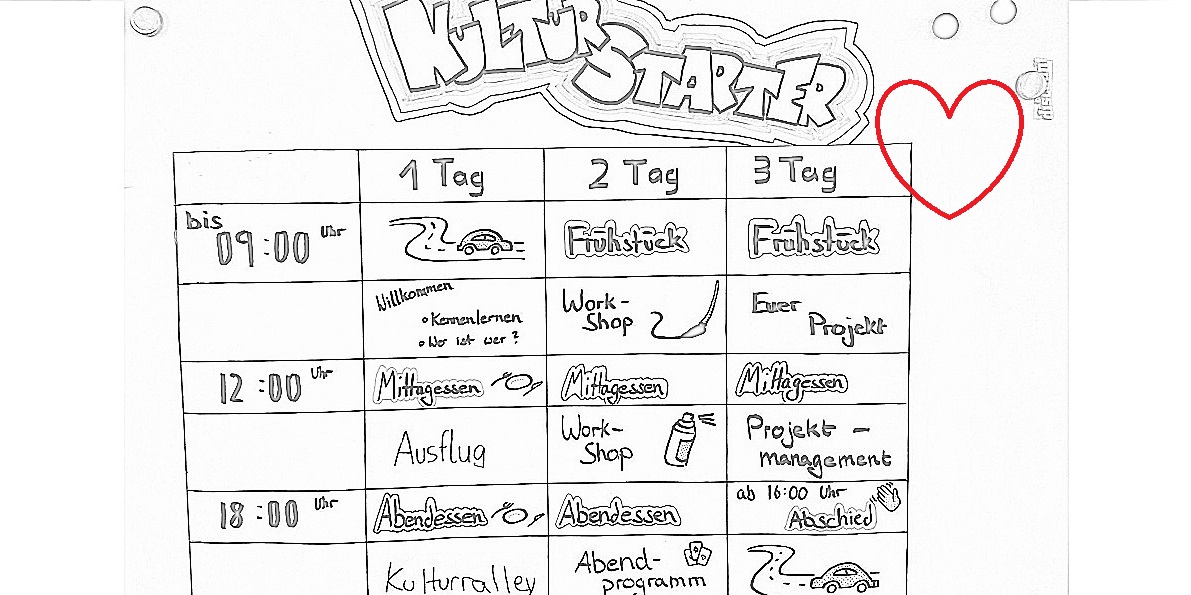 KULTUR
STARTER
1 Tag 2 Tag 3 Tag
bis
09:00 Uhr Frühstück Frühstück
Willkommen
• Kennenlernen
• Wer ist wer?
Work-
Shop
Euer
Projekt
12:00 Uhr Mittagessen Mittagessen Mittagessen
Ausflug
Work-
Shop
Projekt-
management
18:00 Uhr Abendessen Abendessen
ab 16:00 Uhr
Abschied
Kulturralley
Abend-
programm